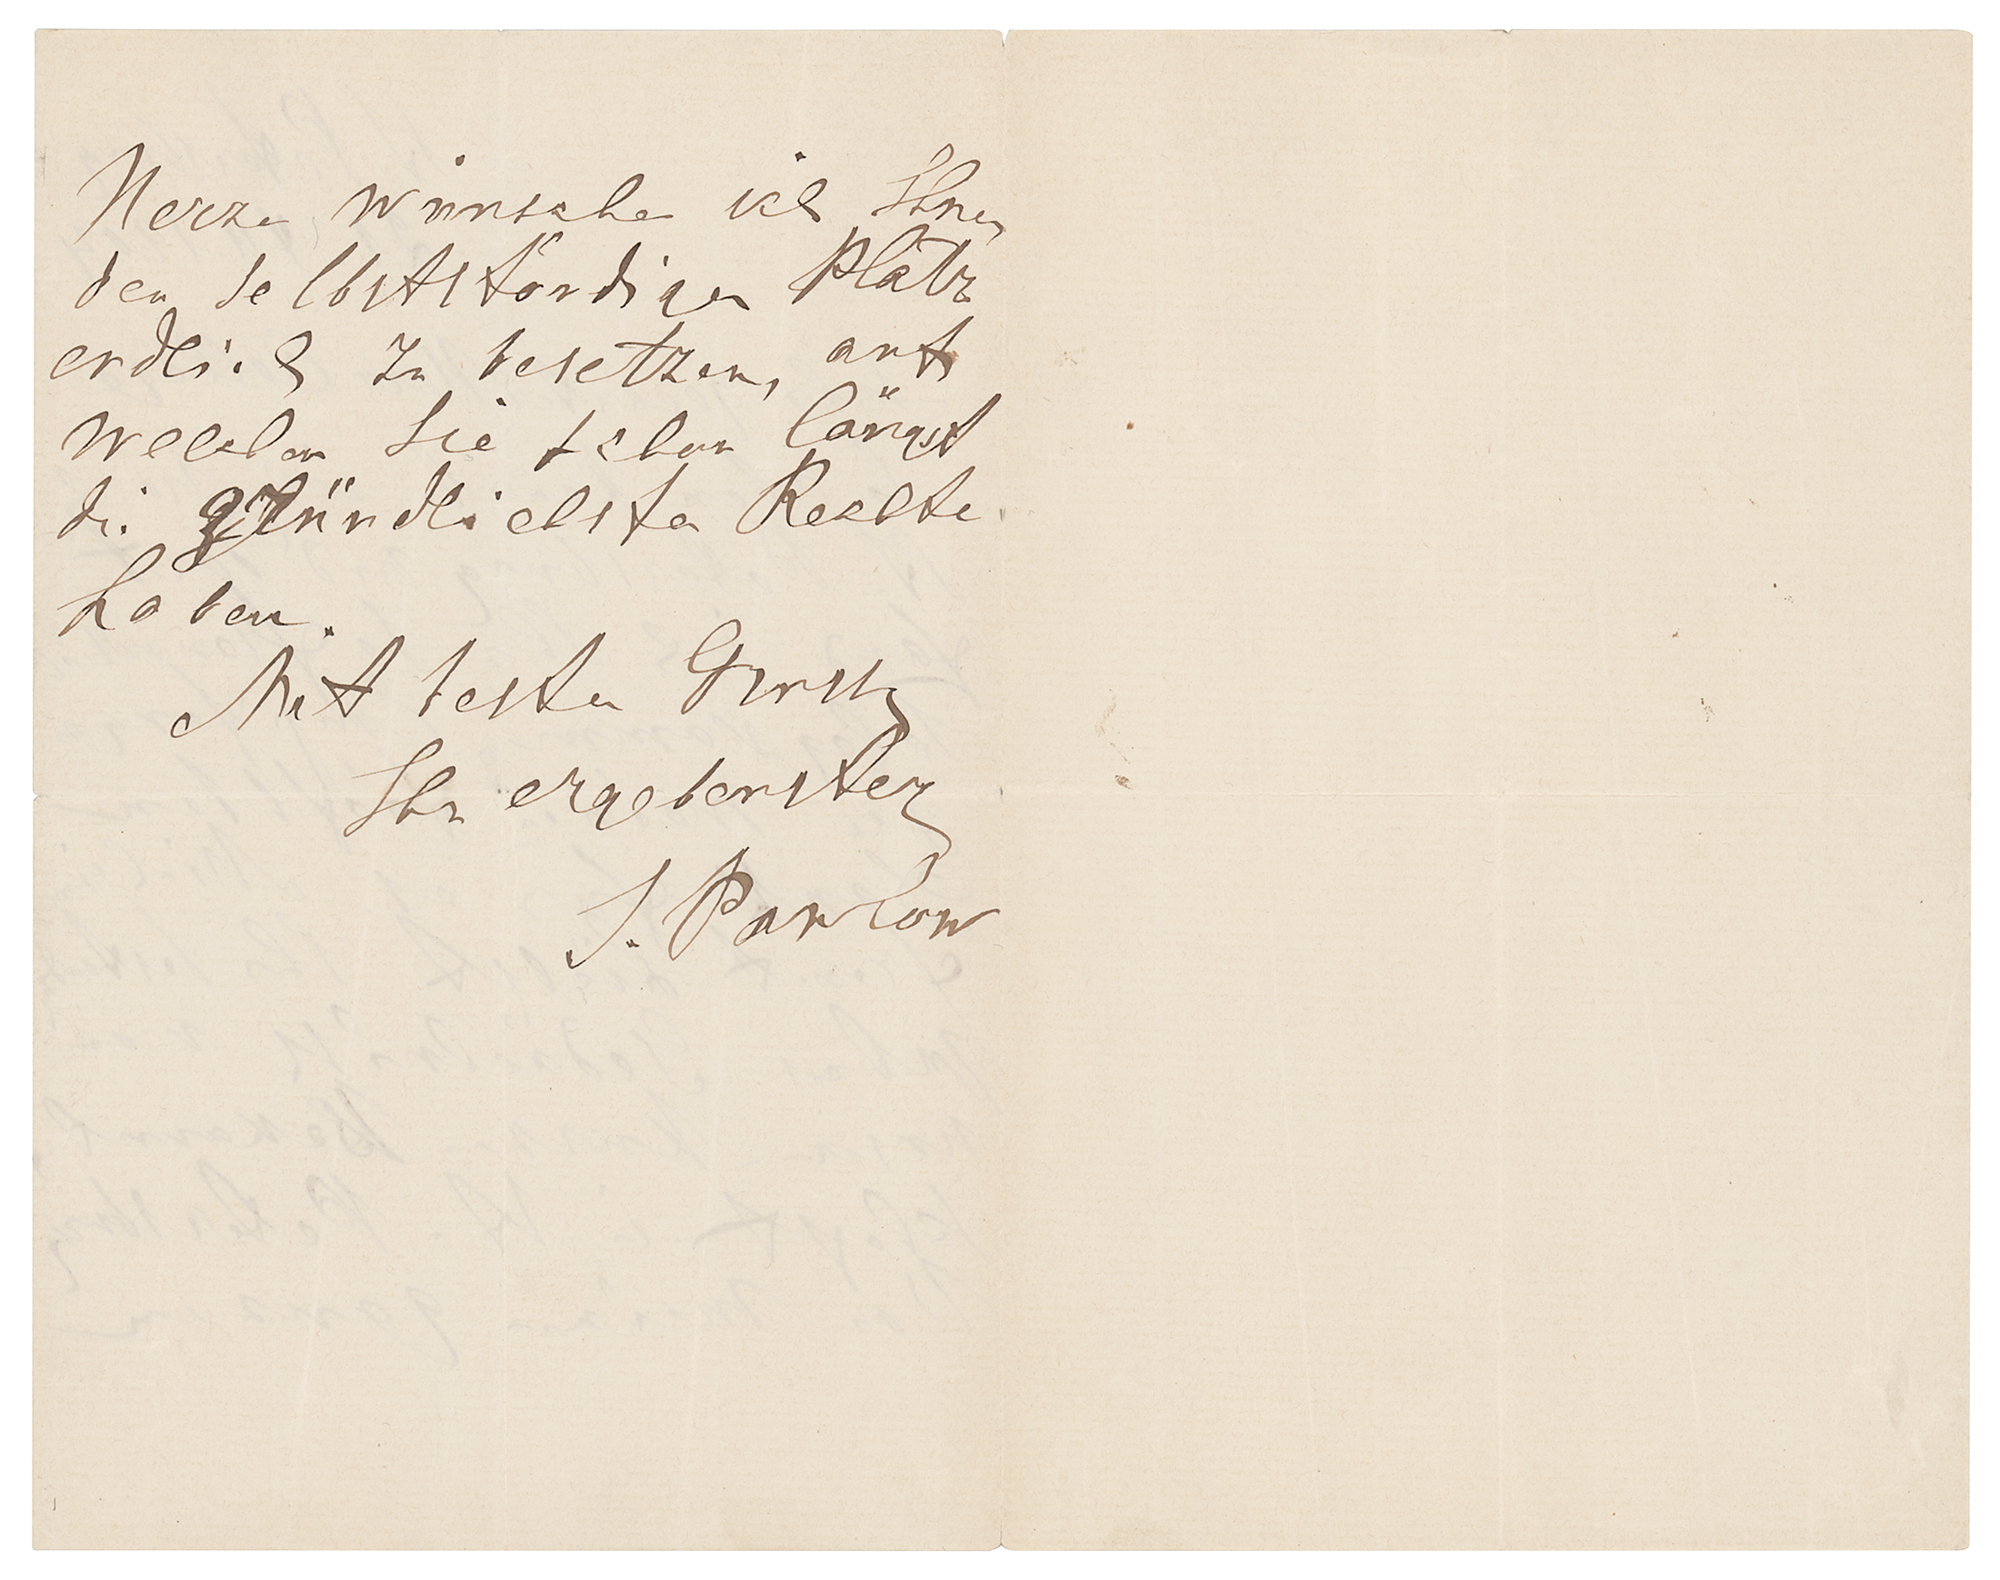 Herze wünsche ich Ihnen
den selbstständigen Platz
endlich zu besetzen, auf
welchen Sie schon längst
die gründlichsten Rechte
haben.
Mit besten Gruss
Ihr ergebenster
J. Pawlow